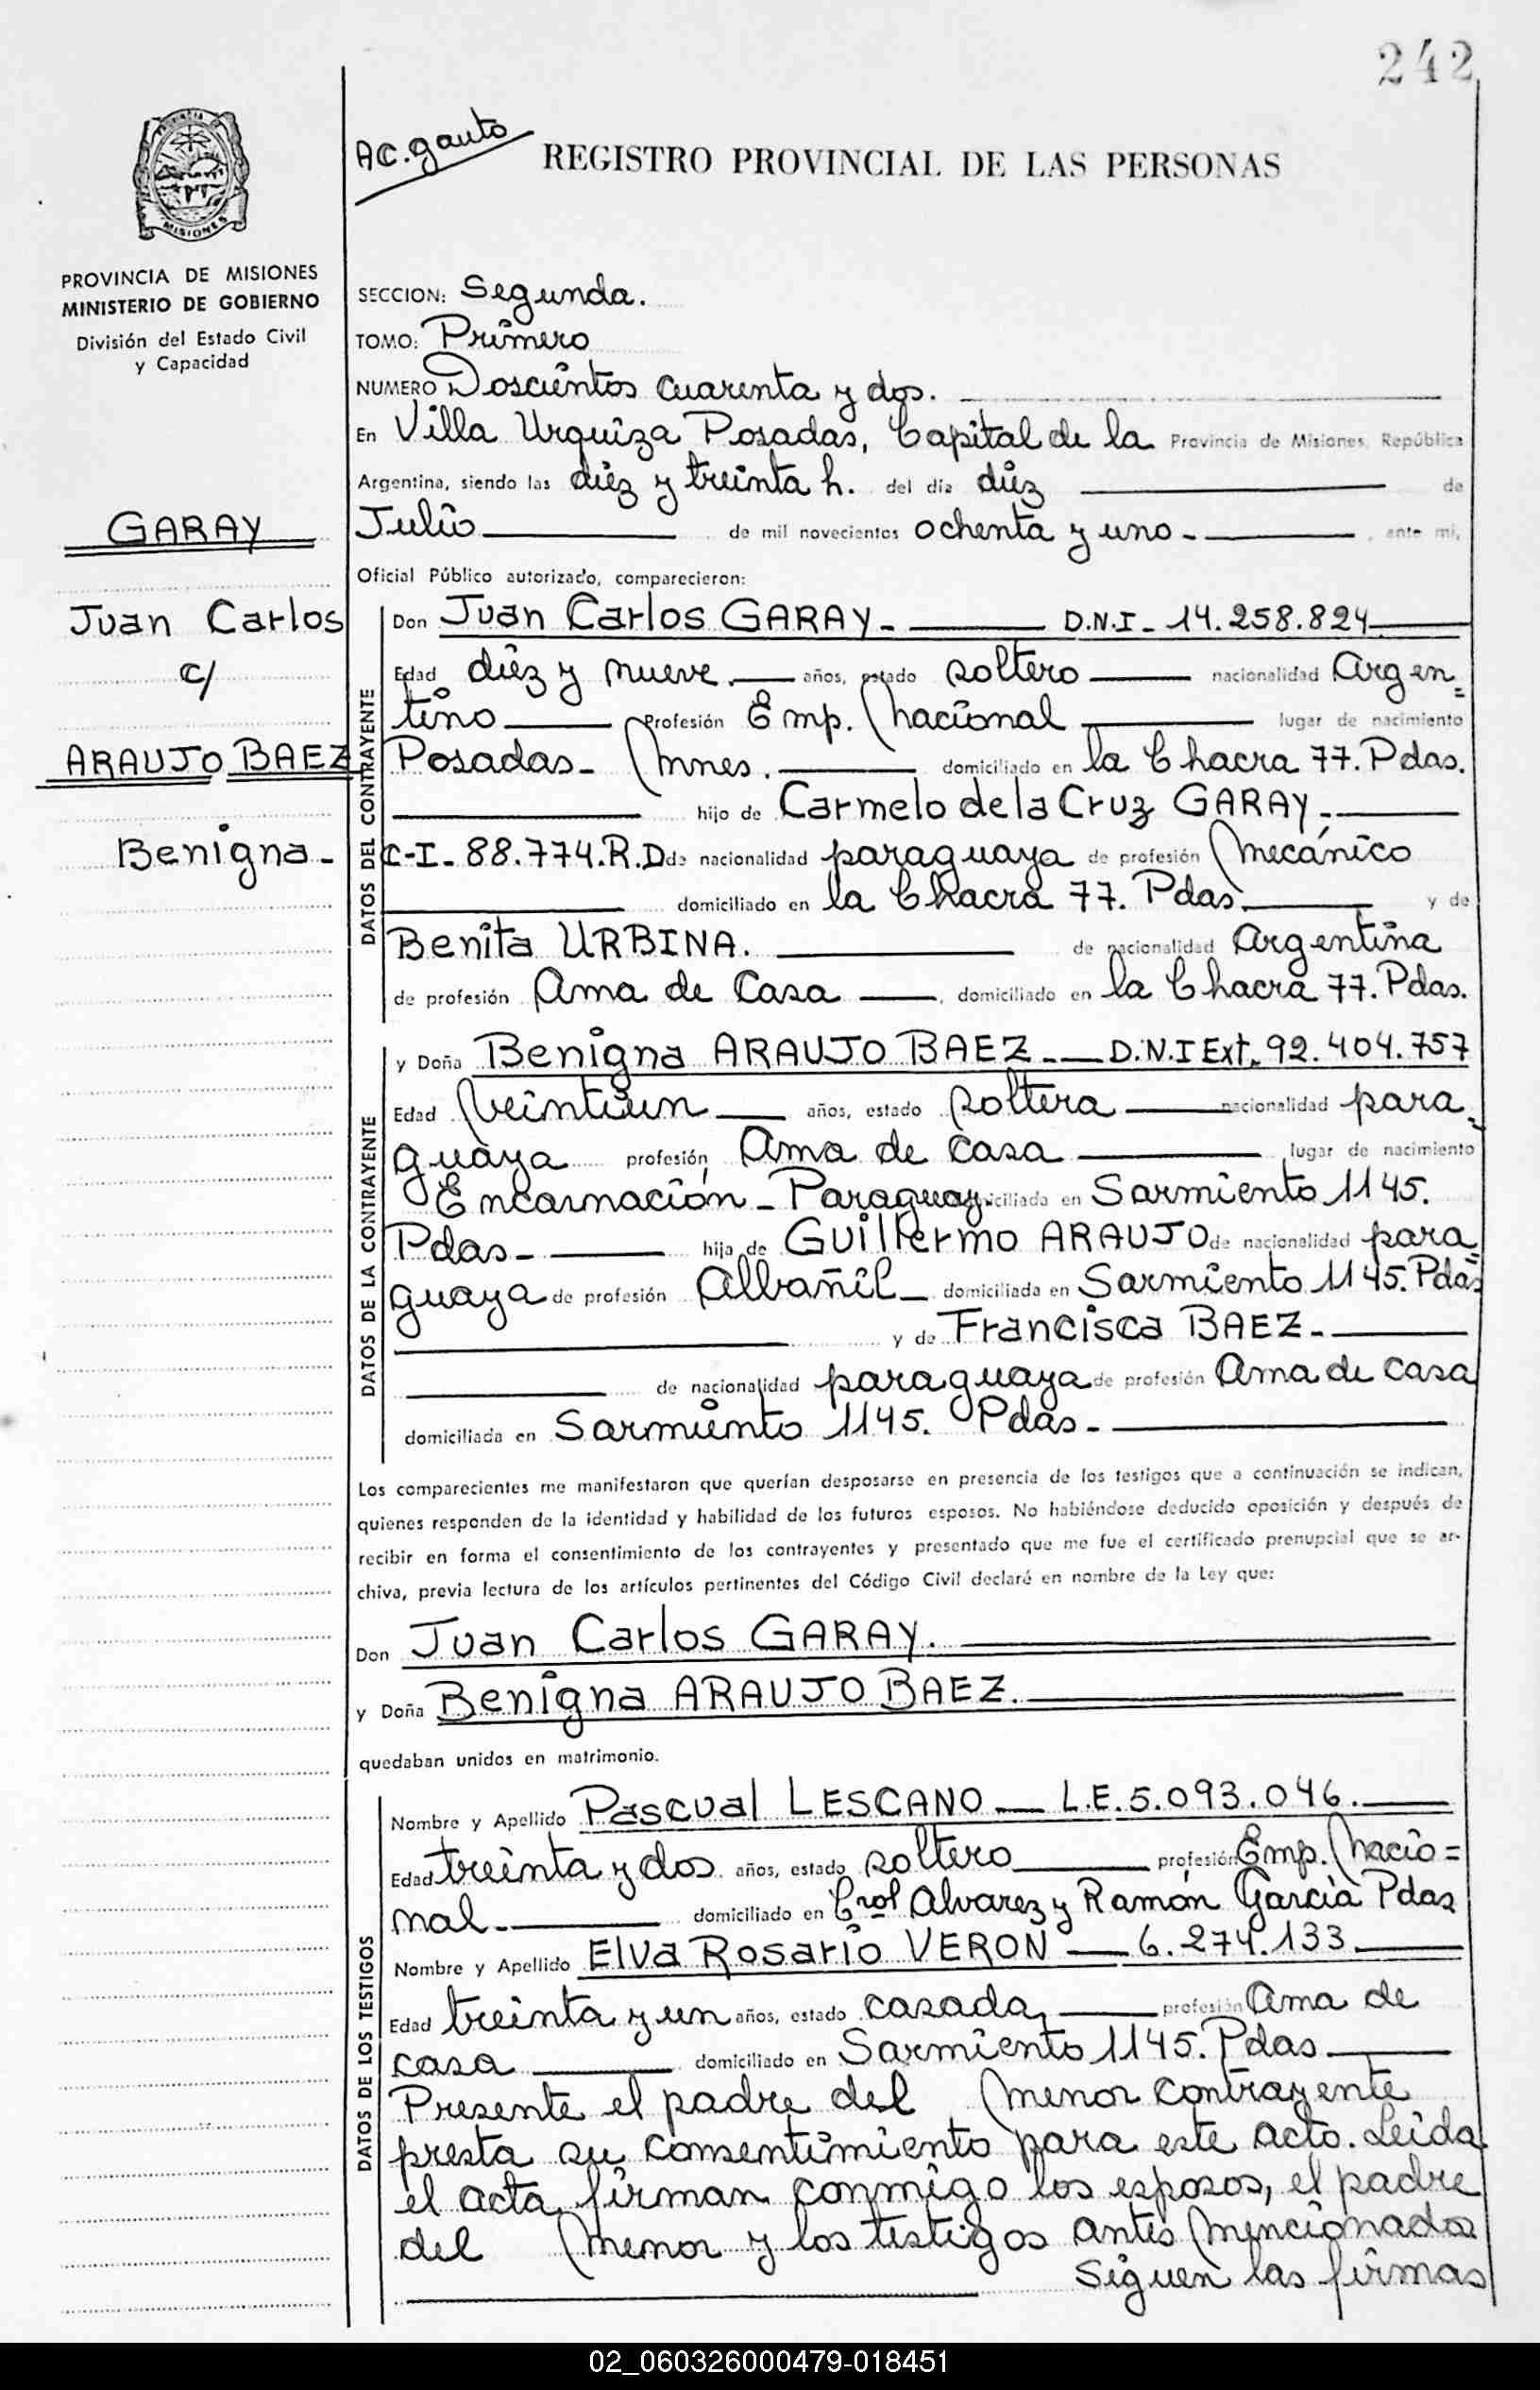 242
AC. gauto
REGISTRO PROVINCIAL DE LAS PERSONAS
MISIONES
PROVINCIA DE MISIONES
MINISTERIO DE GOBIERNO
División del Estado Civil
y Capacidad
GARAY
Juan Carlos
c/
ARAUJO BAEZ
Benigna-
SECCION: Segunda.
TOMO: Primero
NUMERO Doscientos cuarenta y dos.
En Villa Urquiza Posadas, Capital de la Provincia de Misiones, República
Argentina, siendo las diez y treinta h. del día diez de
Julio de mil novecientos ochenta y uno- ante mi,
Oficial Público autorizado, comparecieron:
DATOS DEL CONTRAYENTE
Don Juan Carlos GARAY- D.N.I- 14.258.824
Edad diez y nueve. años, estado soltero nacionalidad Argen=
tino Profesión Emp. nacional lugar de nacimiento
Posadas- Mnes. domiciliado en la Chacra 77. Pdas.
hijo de Carmelo de la Cruz GARAY.
C-I- 88.774.R.D de nacionalidad paraguaya de profesión Mecánico
domiciliado en la Chacra 77. Pdas. y de
Benita URBINA. de nacionalidad Argentina
de profesión Ama de Casa domiciliado en la Chacra 77. Pdas.
DATOS DE LA CONTRAYENTE
y Doña Benigna ARAUJO BAEZ. D.N.I Ext. 92.404.757
Edad Veintiun años, estado soltera nacionalidad para=
guaya profesión Ama de casa lugar de nacimiento
Encarnación - Paraguay. domiciliada en Sarmiento 1145.
Pdas- hija de Guillermo ARAUJO de nacionalidad para=
guaya de profesión Albañil domiciliada en Sarmiento 1145. Pdas
y de Francisca BAEZ-
de nacionalidad paraguaya de profesión Ama de casa
domiciliada en Sarmiento 1145. Pdas-
Los comparecientes me manifestaron que querían desposarse en presencia de los testigos que a continuación se indican,
quienes responden de la identidad y habilidad de los futuros esposos. No habiéndose deducido oposición y después de
recibir en forma el consentimiento de los contrayentes y presentado que me fue el certificado prenupcial que se ar-
chiva, previa lectura de los artículos pertinentes del Código Civil declaré en nombre de la Ley que:
Don Juan Carlos GARAY.
y Doña Benigna ARAUJO BAEZ.
quedaban unidos en matrimonio.
DATOS DE LOS TESTIGOS
Nombre y Apellido Pascual LESCANO L.E. 5.093.046.
Edad treinta y dos años, estado soltero profesión Emp. Nacio=
nal- domiciliado en Crol Alvarez y Ramón García Pdas
Nombre y Apellido Elva Rosario VERON 6.274.133
Edad treinta y un años, estado casada, profesión Ama de
casa domiciliado en Sarmiento 1145. Pdas.
Presente el padre del menor contrayente
presta su consentimiento para este acto. Leida
el acta, firman conmigo los esposos, el padre
del menor y los testigos antes mencionados
Siguen las firmas
02_060326000479-018451